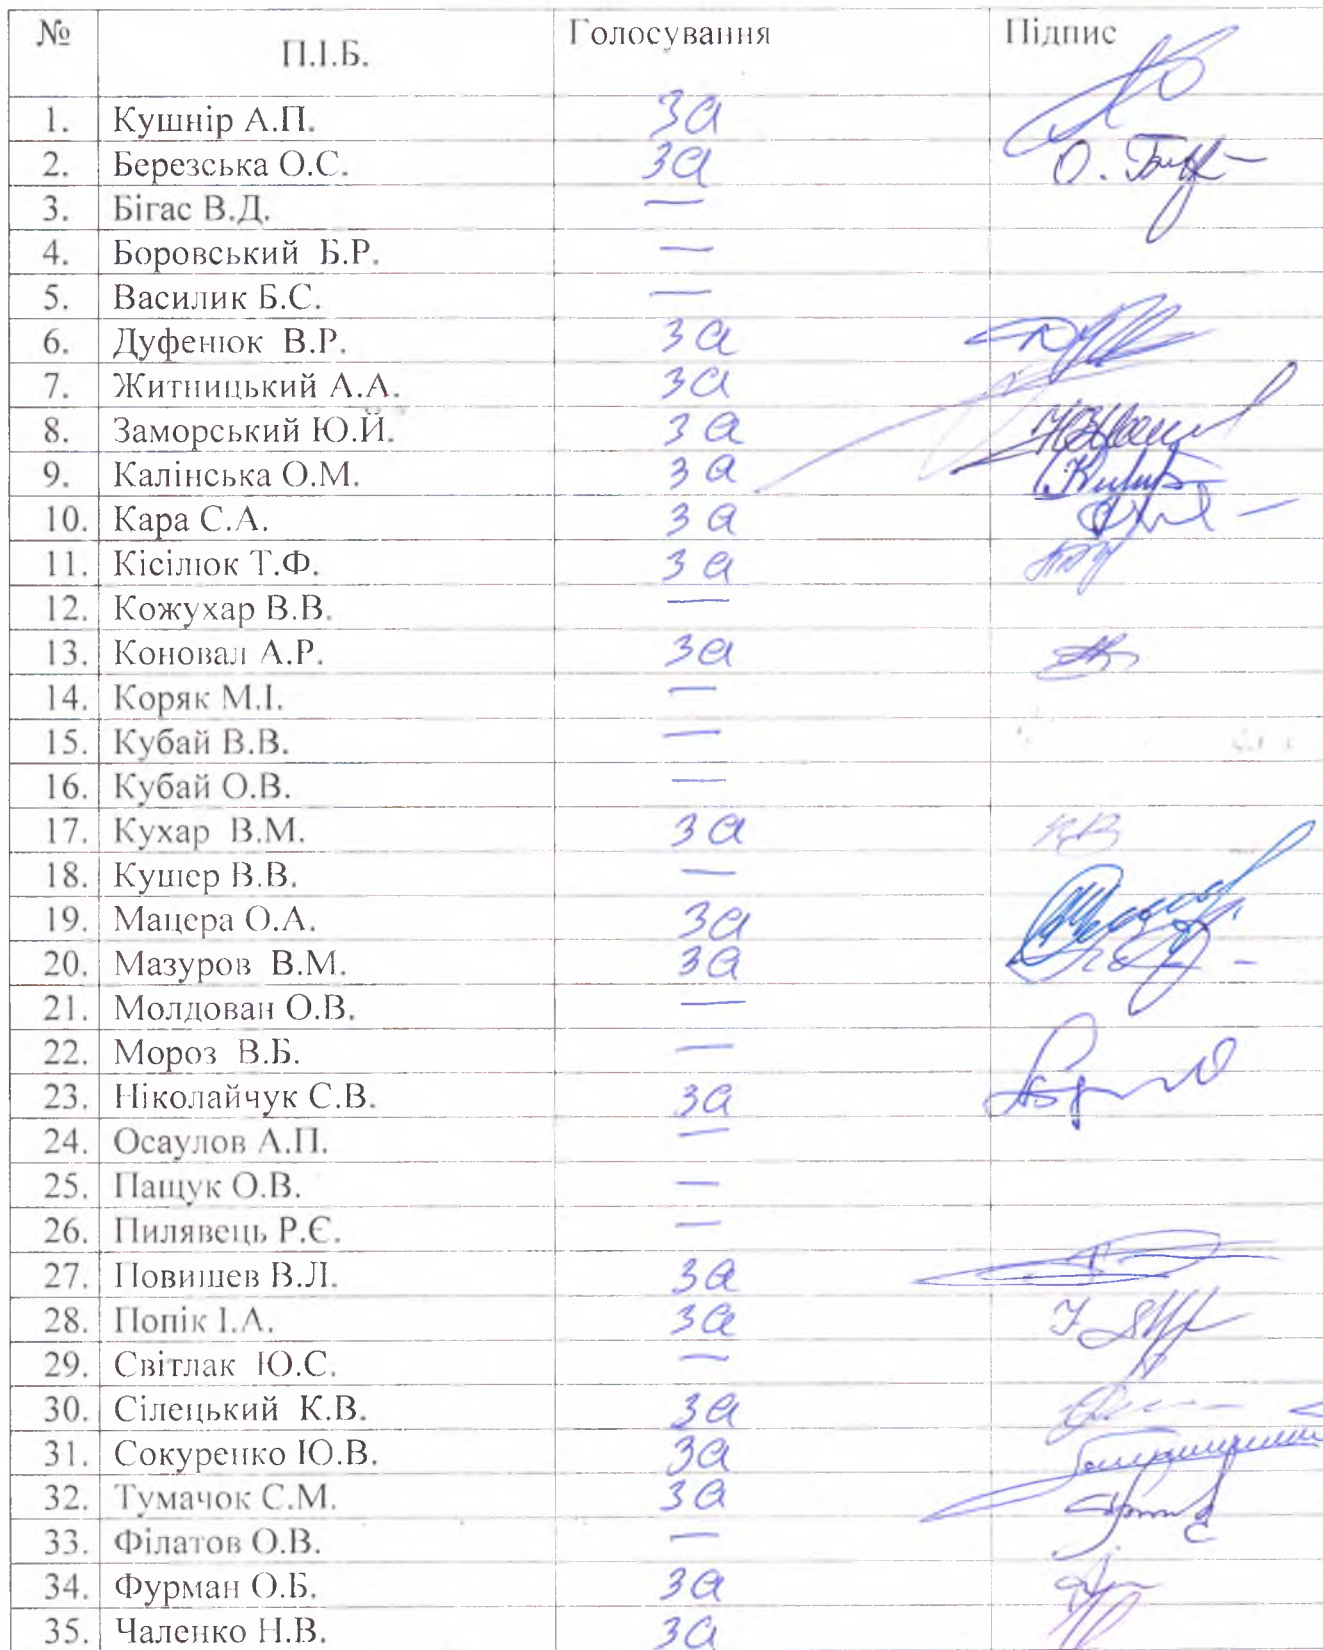 № П.І.Б. Голосування Підпис
1. Кушнір А.П. за
2. Березська О.С. за
3. Бігас В.Д. —
4. Боровський Б.Р. —
5. Василик Б.С. —
6. Дуфенюк В.Р. за
7. Житницький А.А. за
8. Заморський Ю.Й. за
9. Калінська О.М. за
10. Кара С.А. за
11. Кісілюк Т.Ф. за
12. Кожухар В.В. —
13. Коновал А.Р. за
14. Коряк М.І. —
15. Кубай В.В. —
16. Кубай О.В. —
17. Кухар В.М. за
18. Кушер В.В. —
19. Мацера О.А. за
20. Мазуров В.М. за
21. Молдован О.В. —
22. Мороз В.Б. —
23. Ніколайчук С.В. за
24. Осаулов А.П. —
25. Пащук О.В. —
26. Пилявець Р.Є. —
27. Повишев В.Л. за
28. Попік І.А. за
29. Світлак Ю.С. —
30. Сілецький К.В. за
31. Сокуренко Ю.В. за
32. Тумачок С.М. за
33. Філатов О.В. —
34. Фурман О.Б. за
35. Чаленко Н.В. за